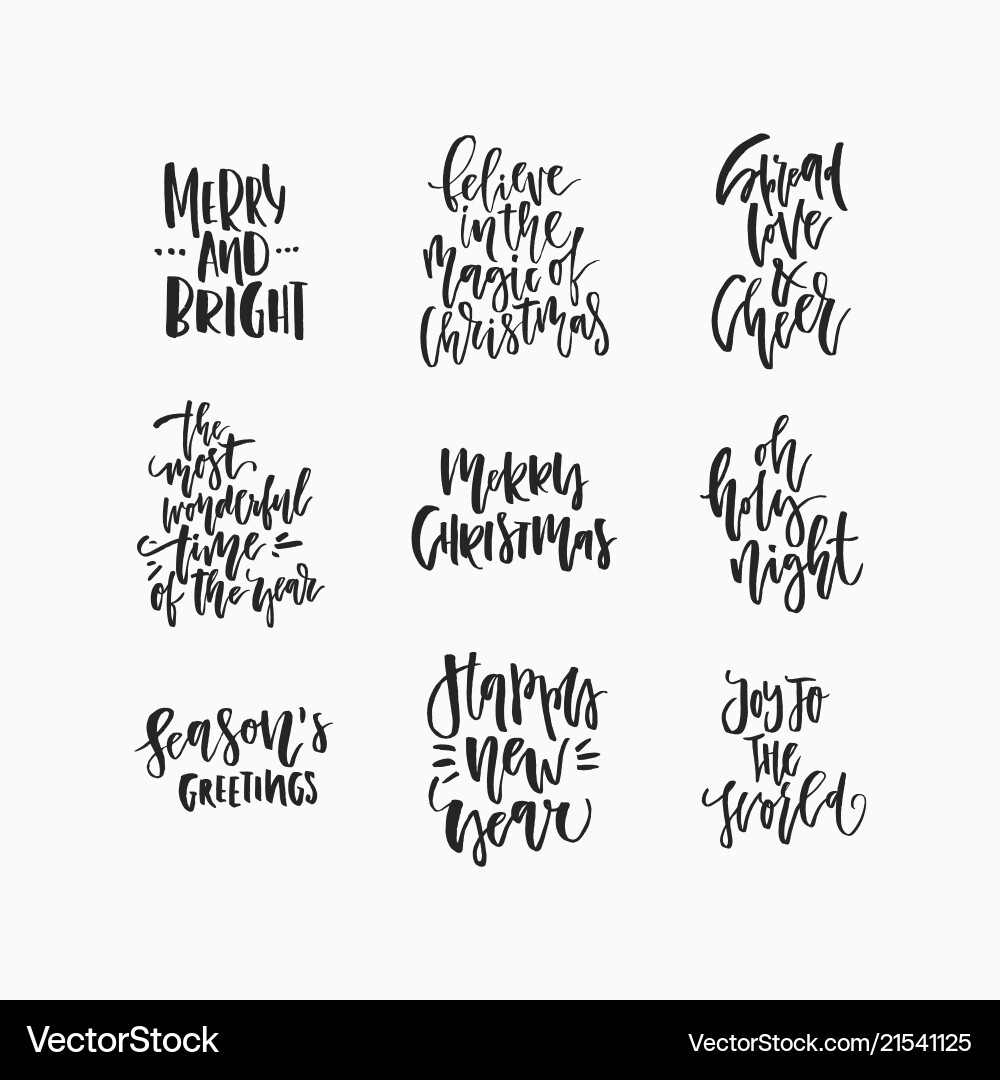 MERRY
··· AND ···
BRIGHT
believe
in the
Magic of
Christmas
Spread
love
&
Cheer
the
most
wonderful
time
of the year
MERRY
CHRISTMAS
oh
holy
night
Season's
GREETINGS
Happy
new
year
Joy To
THE
world
VectorStock®
VectorStock.com/21541125